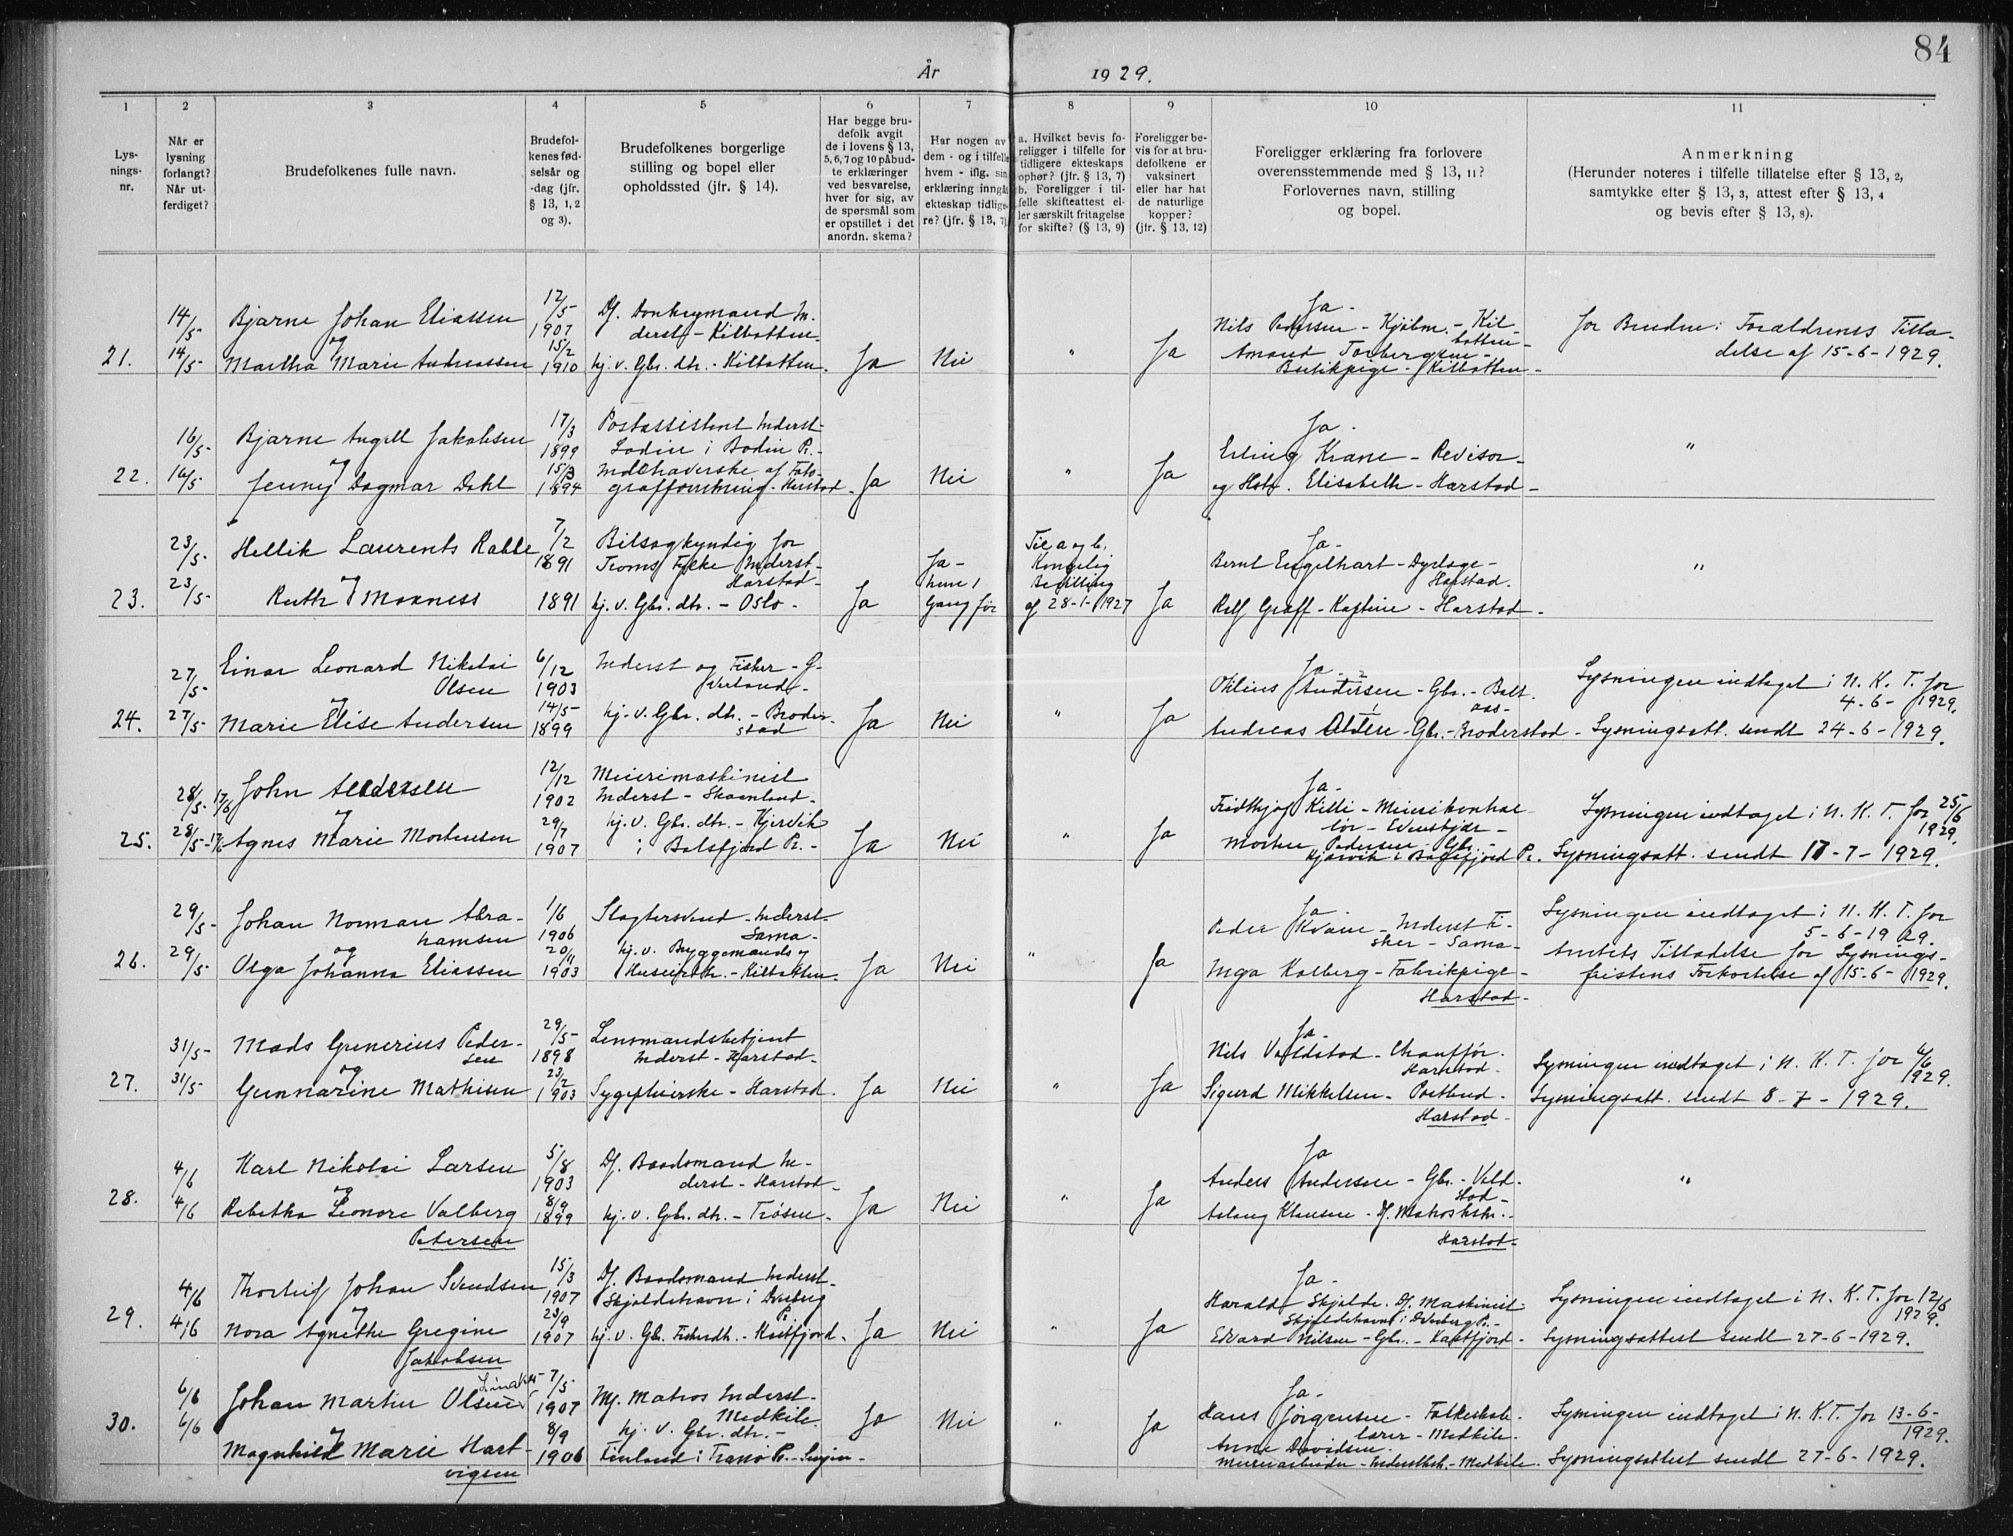 84
År 1929.
1 2 3 4 5 6 7 8 9 10 11
Lys-
nings-
nr.
Når er
lysning
forlangt?
Når ut-
ferdiget?
Brudefolkenes fulle navn.
Brudefol-
kenes fød-
selsår og
-dag (jfr.
§ 13, 1, 2
og 3).
Brudefolkenes borgerlige
stilling og bopel eller
opholdssted (jfr. § 14).
Har begge bru-
defolk avgit
de i lovens § 13,
5, 6, 7 og 10 påbud-
te erklæringer
ved besvarelse,
hver for sig, av
de spørsmål som
er opstillet i det
anordn. skema?
Har nogen av
dem - og i tilfelle
hvem - iflg. sin
erklæring inngått
ekteskap tidlige-
re? (jfr. § 13, 7)
a. Hvilket bevis fo-
religger i tilfelle for
tidligere ekteskaps
ophør? (jfr. § 13, 7)
b. Foreligger i til-
felle skifteattest el-
ler særskilt fritagelse
for skifte? (§ 13, 9)
Foreligger be-
vis for at bru-
defolkene er
vaksinert
eller har hat
de naturlige
kopper?
(jfr. § 13, 12)
Foreligger erklæring fra forlovere
overensstemmende med § 13, 11?
Forlovernes navn, stilling
og bopel.
Anmerkning
(Herunder noteres i tilfelle tillatelse efter § 13, 2,
samtykke efter § 13, 3, attest efter § 13, 4
og bevis efter § 13, 8).
21.
14/5-
14/5-
Bjarne Johan Eliassen
og
Martha Marie Andreassen
12/5-
1907
15/2
1910
Df. Donkeymand In-
derst - Kilbotten.
hj. v. Gbr. dtr. - Kilbotten.
Ja
Nei
"
Ja
Ja -
Nils Pedersen - Kjölm. - Kil-
botten -
Amand Torbergsen -
Butikpige - Kilbotten -
for Bruden: Forældrenes Tilla-
delse af 15-6-1929.
22.
16/5-
16/5
Bjarne Angell Jakobsen
og
Jenny Dagmar Dahl
17/3
1899
15/3
1894
Postassistent Inderst -
Lödin i Bodin P. -
Indehaverske af Foto-
grafforretning - Harstad -
Ja
Nei
"
Ja
Ja -
Erling Krane - Revisor -
og Hstr. Elisabeth - Harstad -
"
23.
23/5-
23/5-
Hellik Laurents Rabbe
og
Ruth Moxness
7/2
1891
1891
Bilsagkyndig for
Troms Fylke Inderst -
Harstad -
hj. v. Gbr. dtr. - Oslo -
Ja
Ja -
hun 1
Gang för
Til a og b.
Kongelig
Bevilling
af 28-1-1927
Ja
Ja -
Bernt Engelhart - Dyrlæge -
Harstad.
Rolf Graff - Kaptein - Harstad -
"
24.
27/5-
27/5-
Einar Leonard Nikolai
Olsen
og
Marie Elise Andersen
6/12
1903
14/5-
1899
Inderst og Fisker - G-
hj. v. Gbr. dtr. - Broder-
stad
Ja
Nei
"
Ja
Ja -
Othlius Andersen - Gbr. - Balt-
aas -
Andreas Olsen - Gbr. - Broderstad -
Lysningen indtaget i N. K. T. for
4-6-1929.
Lysningsatt. sendt 24-6-1929.
25.
28/5- 17/6
28/5- 17/6
John Andersen
og
Agnes Marie Mortensen
12/12
1902
29/7
1907
Meierimaskinist
Inderst - Skaanland -
hj. v. Gbr. dtr. - Kjervik
i Balsfjord P. -
Ja
Nei
"
Ja
Ja -
Fridthjof Killi - Meierikontrol-
lör - Evenskjær -
Morten Pedersen - Gbr. -
Kjærvik i Balsfjord P.
Lysningen indtaget i N. K. T. for 25/6
1929.
Lysningsatt. sendt 17-7-1929.
26.
29/5-
29/5-
Johan Norman Abra-
hamsen
og
Olga Johanna Eliassen
1/6
1906
20/11
1903
Slagtersvend - Inderst -
Sama -
hj. v. Byggemands og
Huseierdtr. - Kilbotten -
Ja
Nei
"
Ja
Ja -
Peder Kvane - Inderst Fi-
sker - Sama -
Inga Kolberg - Fabrikpige -
Harstad -
Lysningen indtaget i N. K. T. for
5-6-1929.
Amtets Tilladelse for Lysnings-
fristens Forkortelse af 15-6-1929.
27.
31/5-
31/5
Mads Grenerius Peder-
sen
og
Gunnarine Mathisen
29/5-
1898
23/2
1903
Lensmandsbetjent
Inderst - Harstad -
Sygepleierske - Harstad.
Ja
Nei
"
Ja
Ja -
Nils Voldstad - Chauffør -
Harstad -
Sigurd Mikkelsen - Postbud -
Harstad -
Lysningen indtaget i N. K. T. for 6/6
1929.
Lysningsatt. sendt 8-7-1929.
28.
4/6
4/6
Karl Nikolai Larsen
og
Rebekka Leonore Valberg
Petersen
5/8
1903
8/9
1899
Df. Baadsmand In-
derst - Harstad -
hj. v. Gbr. dtr. - Trösen -
Ja
Nei
"
Ja
Ja
Anders Andersen - Gbr. - Vold-
stad -
Aslaug Klausen - Df. Matroshstr. -
Harstad -
"
29.
4/6
4/6
Thorleif Johan Svendsen
og
Nora Agnethe Gregine
Jakobsen
15/3
1907
23/9
1907
Df. Baadsmand Inderst -
Skjoldehavn i Dverberg
P.
hj. v. Gbr. Fiskerdtr. - Kastfjord.
Ja
Nei
"
Ja
Ja -
Harald Skjolde - Df. Maskinist
Skjoldehavn i Dverberg P. -
Edvard Nilsen - Gbr. - Kastfjord -
Lysningen indtaget i N. K. T. for 12/6
1929.
Lysningsattest sendt 27-6-1929.
30.
6/6
6/6
Johan Martin Olsen
og
Magnhild Marie Hart-
vigsen
7/5
1907
8/9
1906
Mf. Matros Inderst -
Medkile.
hj. v. Gbr. dtr. -
Finland i Tranö P. - Senjen -
Ja
Nei
"
Ja
Ja -
Hans Jörgensen - Folkeskole-
lærer - Medkile -
Anna Davidsen -
Lysningen indtaget i N. K. T. for 13-6-
1929.
Lysningsattest sendt 27-6-1929.